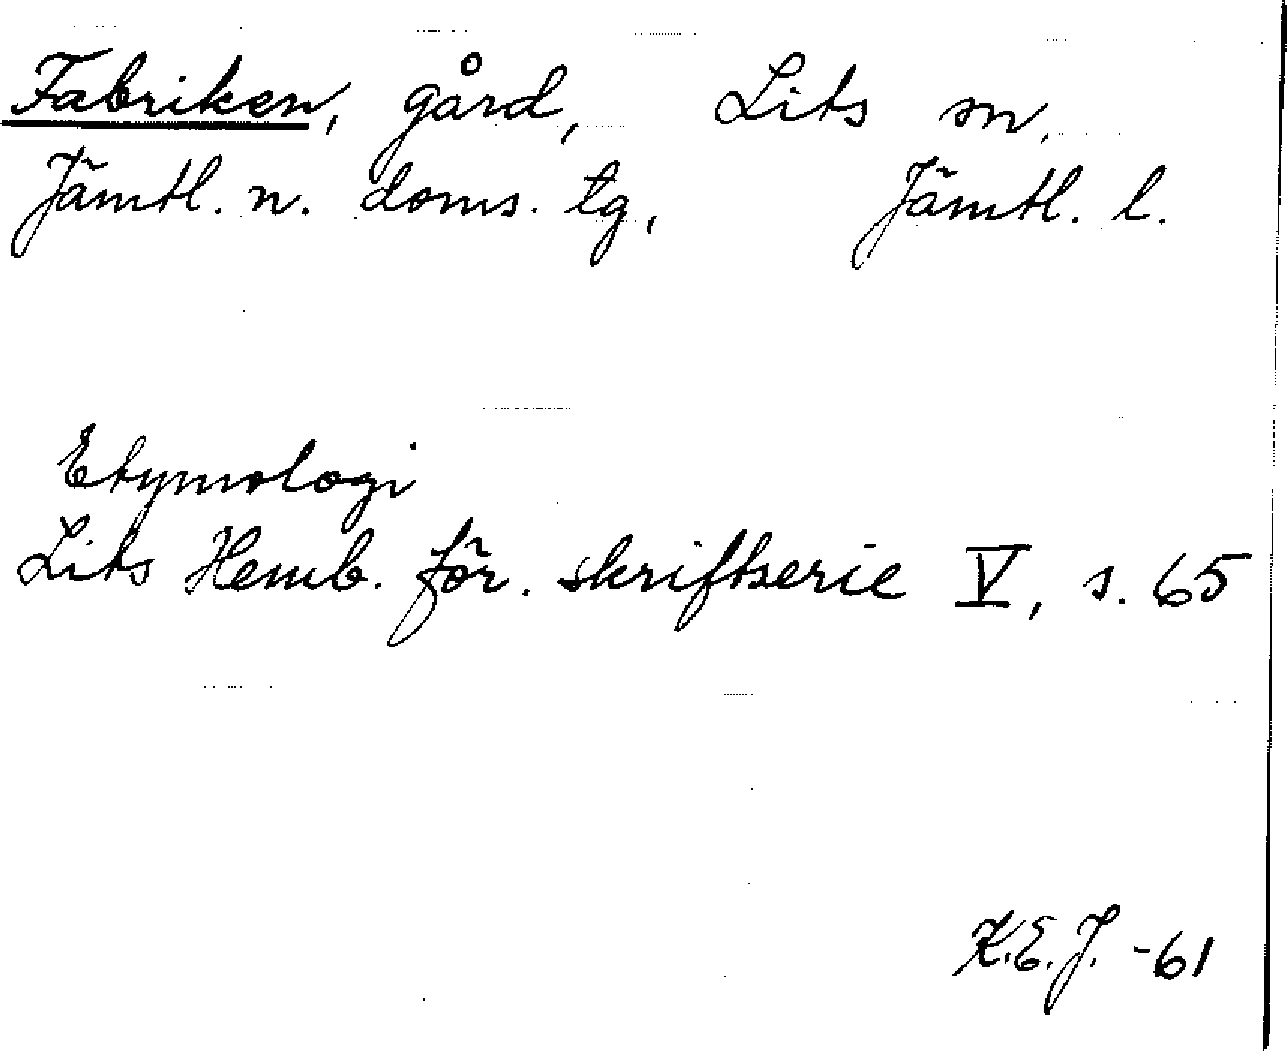 Fabriken, gård, Lits sn,
Jämtl. n. doms. tg, Jämtl. l.
Etymologi
Lits Hemb. för. skriftserie V, s. 65
K.E.J. -61